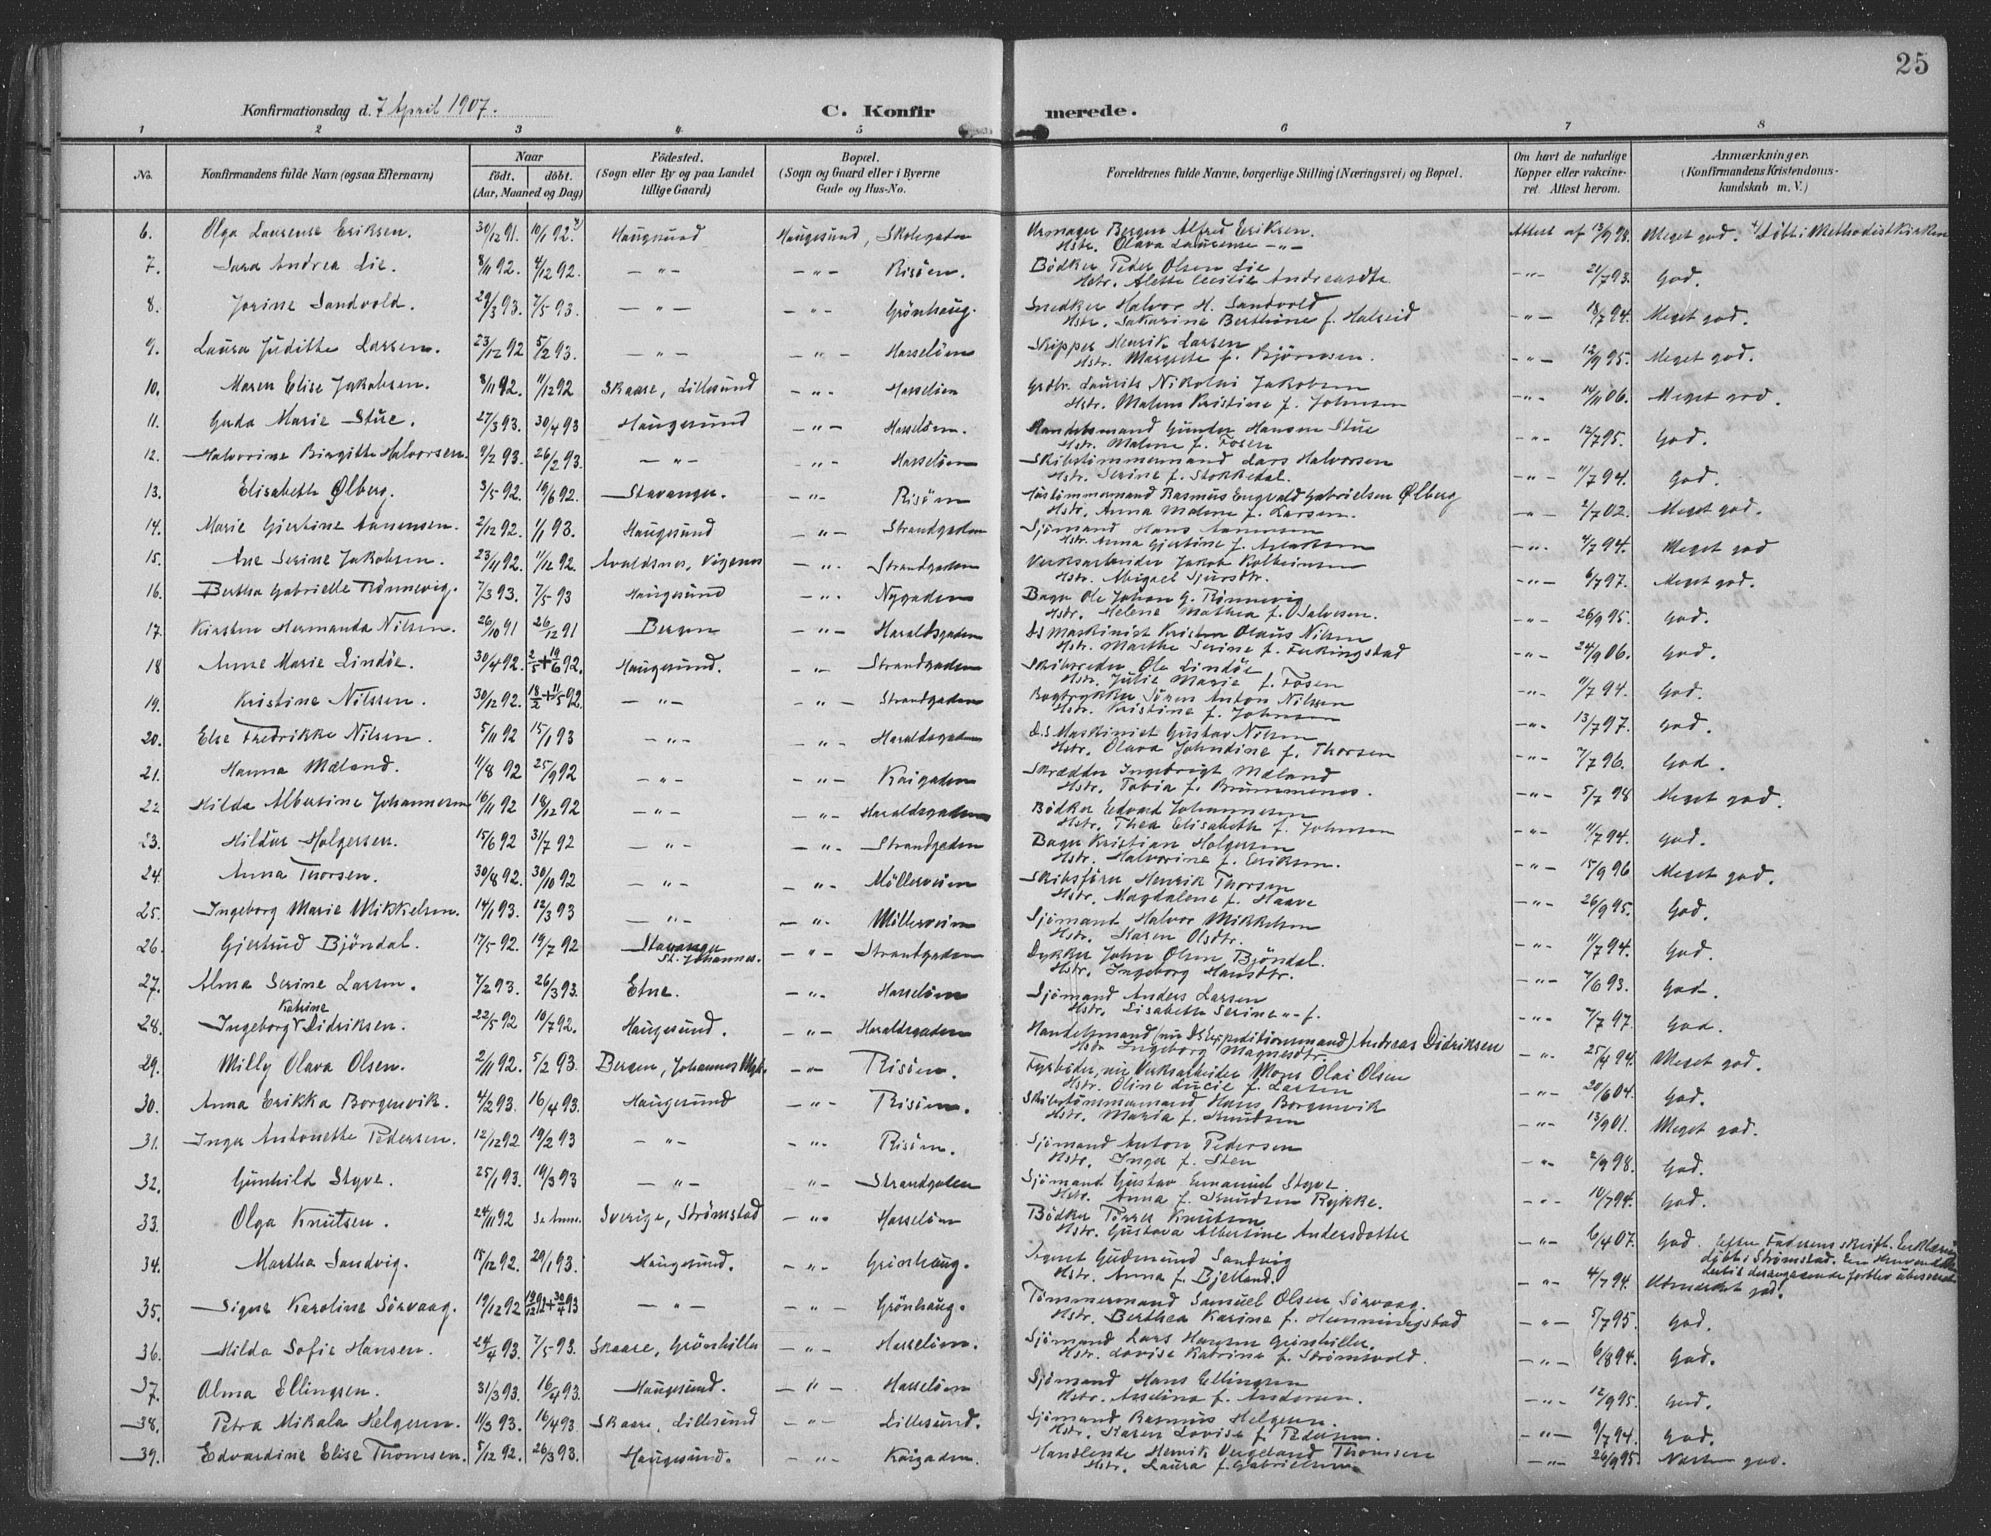 25
Konfirmationsdag d. 7 April 1907.
C. Konfirmerede.
1 2 3 4 5 6 7 8
No. Konfirmandens fulde Navn (ogsaa Efternavn) Naar født. døbt. (Aar, Maaned og Dag) Fødested. (Sogn eller By og paa Landet tillige Gaard) Bopæl. (Sogn og Gaard eller i Byerne Gade og Hus-No. Forældrenes fulde Navne, borgerlige Stilling (Næringsvei) og Bopæl. Om havt de naturlige Kopper eller vaccineret. Attest herom. Anmærkninger. (Konfirmandens Kristendomskundskab m. V.)
6. Olga Laurense Eriksen. 30/12 91. 10/1 92. Haugesund Haugesund, Skolegaden Urmager Bergen Alfred Eriksen. Hstr. Olava Laurense -"- Attest af 13/9 98. Meget god. Døbt i Methodistkirken
7. Sara Andrea Lie. 8/11 92. 4/12 92. -"- -"- Risøen. Bödker Peder Olsen Lie Hstr. Alette Cecilie Andreasdtr. -"- 21/7 93. God.
8. Jorine Sandvold. 29/3 93. 7/5 93. -"- -"- Grönhaug. Snedker Halvor H. Sandvold Hstr. Sakarine Berthine f. Halseid -"- 18/7 94. Meget god.
9. Laura Juditte Larsen. 23/12 92 5/2 93. -"- -"- Hasseløen Skipper Henrik Larsen Hstr. Margrete f. Bjørnsen. -"- 12/9 95. Meget god.
10. Maren Elise Jakobsen. 8/11 92. 11/12 92 Skaare, Lillesund -"- Hasseløen Grdbr. Laurits Nikolai Jakobsen Hstr. Malene Kristine f. Johnsen -"- 14/11 06. Meget god.
11. Gerda Marie Stue. 27/3 93. 30/4 93 Haugesund -"- Hasseløen. Handelsmand Gunder Hansen Stue Hstr. Malene f. Fosen -"- 12/7 95. God.
12. Halvorine Birgitte Halvorsen. 9/2 93. 26/2 93. -"- -"- Hasseløen Skibstimmermand Lars Halvorsen Hstr. Serine f. Stokkedal. -"- 11/7 94. God.
13. Elisabeth Ølberg. 3/5 92. 19/6 92. Stavanger. -"- Risøen Hustimmermand Rasmus Engvald Gabrielsen Ølberg Hstr. Anna Malene f. Larsen. -"- 2/7 02. Meget god.
14. Marie Gjertine Aanensen. 2/12 92. 1/1 93. Haugesund -"- Strandgaden Sjömand Hans Aanensen Hstr. Anna Gjertine f. Aslaksen -"- 4/7 94. Meget god
15. Ane Serine Jakobsen. 23/11 92. 11/12 92. Avaldsnes, Vigenes -"- Strandgaden Verksarbeider Jakob Kolbeinsen Hstr. Abigael Sjursdtr. -"- 6/7 97. Meget god.
16. Bertha Gabrielle Rønnevig. 7/3 93. 7/5 93 Haugesund -"- Nygaden Bager Ole Johan G. Rønnevig Hstr. Helene Mathea f. Salvesen. -"- 26/9 95. God.
17. Kirsten Hermanda Nilsen. 26/10 91 26/12 91 Bergen -"- Haraldsgaden D.S Maskinist Kristen Olaus Nilsen Hstr. Marthe Serine f. Ferkingstad -"- 24/9 06. God.
18 Anne Marie Lindøe. 30/4 92. 2/5 + 19/6 92. Haugesund. -"- Strandgaden Skibsreder Ole Lindøe Hstr. Julie Marie f. Fosen -"- 11/7 94. God.
19. Kristine Nilssen. 30/12 92. 18/2 + 11/5 92. -"- -"- Strandgaden Bogtrykker Sören Anton Nilssen Hstr. Kristine f. Johnsen -"- 13/7 97. God.
20. Else Fredrikke Nilsen. 5/11 92 15/1 93 -"- -"- Haraldsgaden D.S Maskinist Gustav Nilsen Hstr. Olava Johndine f. Thorsen -"- 7/7 96. God.
21. Hanna Mæland. 11/8 92 25/9 92 -"- -"- Kaigaden Skrædder Ingebrigt Mæland Hstr. Tobia f. Brummenes. -"- 5/7 98 Meget god.
22 Hilda Albertine Johannesen 16/11 92 18/12 92 -"- -"- Haraldsgaden Bödker Edvard Johannesen Hstr. Thea Elisabeth f. Johnsen -"- 11/7 94. God.
23. Hildur Holgersen. 15/6 92 31/7 92 -"- -"- Strandgaden Bager Kristian Holgersen Hstr. Halvorine f. Eriksen. -"- 15/9 96 Meget god.
24. Anna Thorsen. 30/8 92. 30/10 92 -"- -"- Möllerveien Skibsfører Henrik Thorsen Hstr. Magdalene f. Haave -"- 26/9 95. God.
25. Ingeborg Marie Mikkelsen. 14/1 93. 12/3 93 -"- -"- Möllerveien Sjömand Halvor Mikkelsen Hstr. Karen Olsdtr. -"- 11/7 94. God.
26. Gjertrud Bjöndal. 17/5 92. 19/7 92 Stavanger St. Johannes. -"- Strandgaden Dykker John Olsen Bjöndal. Hstr. Ingeborg Hansdtr. -"- 7/6 93. God.
27. Alma Serine Larsen. 7/2 93. 26/3 93. Etne. -"- Hasseløen Sjömand Anders Larsen Hstr. Lisabeth Serine -"- f. -"- 7/7 97. God.
28. Ingeborg Katrine Didriksen. 22/5 92 10/7 92. Haugesund. -"- Haraldsgaden Handelsmand (nu DS Expeditionsmand) Andreas Didriksen Hstr. Ingeborg Magnesdtr. -"- 25/4 94. Meget god.
29. Milly Olava Olsen. 2/11 92. 5/2 93. Bergen, Johannes -"- Risøen. Fyrbøder, nu Verksarbeider Mons Olai Olsen Hstr. Oline Lucie f. Larsen -"- 20/6 04. God.
30. Anna Erikka Borgenvik. 4/2 93. 16/4 93. Haugesund -"- Risøen. Skibstömmermand Hans Borgenvik Hstr. Maria f. Knudsen -"- 13/9 01. Meget god.
31. Inga Antonette Pedersen. 12/12 92 19/2 93 -"- -"- Risøen. Sjömand Anton Pedersen Hstr. Inger f. Sten -"- 2/9 98. God.
32. Gunhild Styve. 25/1 93. 19/3 93 -"- -"- Strandgaden Sjömand Gustav Emanuel Styve Hstr. Anna f. Knudsen Rykke. -"- 10/7 94. God.
33. Olga Knutsen. 24/11 92 Se Anm. Sverige, Strømstad -"- Hasseløen Bödker Knutsen Hstr. Gustava Albertine Andersdotter -"- 6/4 07. God. Efter Faderens skriftl. Erklæring døbt i Strømstad.
34. Martha Sandvig. 15/12 92. 29/1 93. Haugesund. -"- Grönhaug. Agent Gudmund Sandvig Hstr. Anna f. Bjelland. -"- 4/7 94. Udmærket god.
35. Signe Karoline Sörvaag. 19/12 92 -"- -"- Grönhaug. Tömmermand Samuel Olsen Sörvaag. Hstr. Berthea Karine f. Hemmingstad -"- 5/7 95. God.
36. Hilda Sofie Hansen. 24/4 93. 7/5 93. Skaare, Grönhiller -"- Hasseløen. Sjömand Lars Hansen Grönhiller. Hstr. Lovise Katrine f. Strømsvold. -"- 6/8 94. God.
37. Alma Ellingsen. 31/3 93. 16/4 93. Haugesund. -"- Hasseløen Sjömand Hans Ellingsen Hstr. Asseline f. Andersen. -"- 12/9 95. God.
38. Petra Mikala Helgesen. 11/3 93. 16/4 93. Skaare, Lillesund -"- Lillesund. Sjömand Rasmus Helgesen. Hstr. Karen Lovise f. Pedersen. -"- 9/7 94. God.
39. Edvardine Elise Thomsen. 5/12 92. 26/3 93. Haugesund. -"- Kaigaden. Handlende Henrik Vergeland Thomsen Hstr. Laura f. Gabrielsen. -"- 26/9 95. Næsten god.